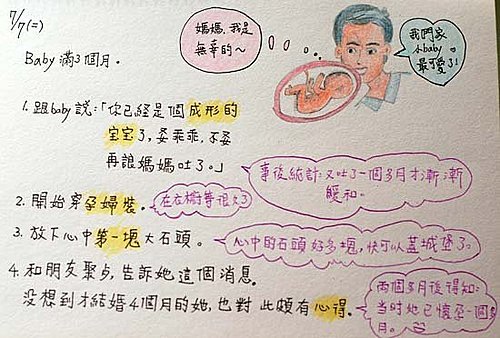 7/7(二)
媽媽,我是
無辜的~
我們家
小baby
最可愛了!
Baby 滿3個月。
1. 跟baby說:「你已經是個成形的
宝宝了,要乖乖,不要
再讓媽媽吐了。」
事後統計:又吐了一個多月才漸漸
緩和。
2. 開始穿孕婦裝。
在衣櫥等很久了
3. 放下心中第一塊大石頭。
心中的石頭好多塊,快可以蓋城堡了。
4. 和朋友聚点,告訴她這個消息。
没想到才結婚4個月的她,也對此頗有心得。
兩個多月後得知:
當時她已懷孕一個多
月。